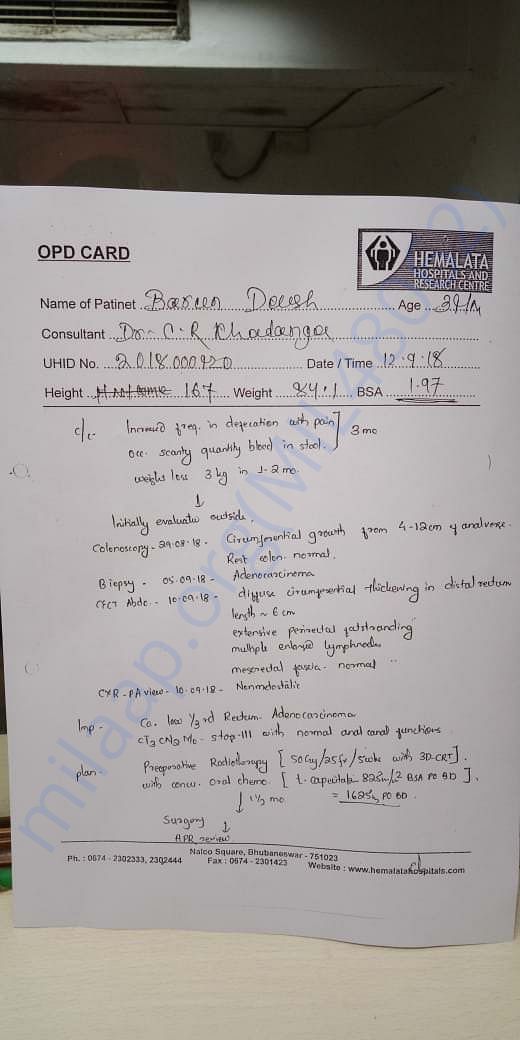 OPD CARD
HEMALATA
HOSPITALS AND
RESEARCH CENTRE
Name of Patinet Age
Consultant Dr. C. R. Khadanga
UHID No. 2018.000920 Date / Time 12.9.18
Height 167 Weight 84.1 BSA 1.97
c/c- Increased freq. in defecation with pain
occ. scanty quantity blood in stool. 3 mo
weight loss 3 kg in 1-2 mo.
↓
Initially evaluated outside.
Colonoscopy - 29.08.18 - Circumferential growth from 4-12cm of analverge.
Rest colon. normal.
Biopsy - 05.09.18 - Adenocarcinoma
CECT Abdo. - 10.09.18 - diffuse circumferential thickening in distal rectum
length ~ 6 cm
extensive perirectal fatstranding
multiple enlarged lymphnodes
mesorectal fascia - normal
CXR - PA view - 10.09.18 - Nonmetastatic
Imp - Ca. low 1/3 rd Rectum. Adenocarcinoma
cT3 CN2 M0 - stage-III with normal anal canal functions.
plan - Preoperative Radiotherapy [50Gy/25fr/5wks with 3D-CRT].
with concu. oral chemo. [t. capecitabine 825m/2 BSA PO BD].
↓ 1½ mo = 1625mg PO BD.
Surgery
↓
APR review
Nalco Square, Bhubaneswar - 751023
Ph. : 0674 - 2302333, 2302444 Fax : 0674 - 2301423 Website : www.hemalatahospitals.com
milaap.org